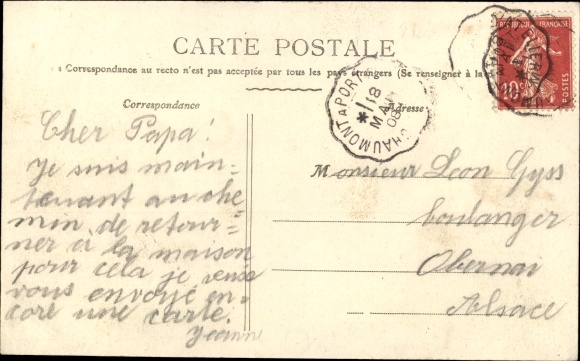 CARTE POSTALE
Correspondance au recto n'est pas acceptée par tous les pays étrangers (Se renseigner à la
Correspondance
Adresse
RÉPUBLIQUE FRANÇAISE
POSTES
10
CHAUMONT A
18
MAI
08
Cher Papa!
Je suis main-
tenant au che-
min de retour-
ner à la maison
pour cela je
vous envoyé en-
core une carte.
Jeanne
Monsieur Leon Gyss
boulanger
Obernai
Alsace